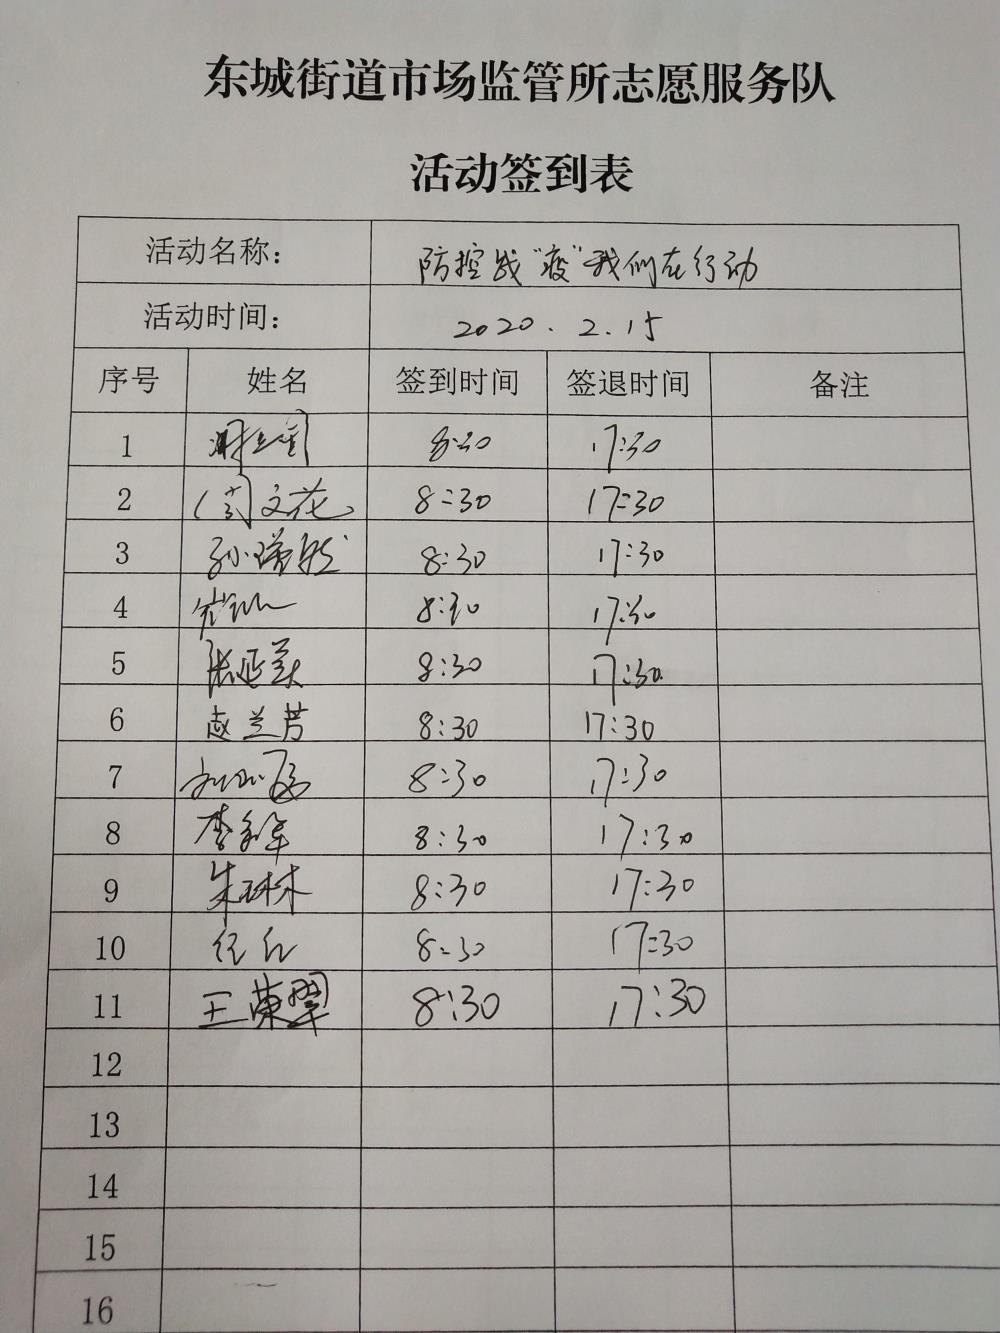 东城街道市场监管所志愿服务队
活动签到表
活动名称： 防控战“疫”我们在行动
活动时间： 2020.2.15
序号 姓名 签到时间 签退时间 备注
1 8:30 17:30
2 周文花 8:30 17:30
3 8:30 17:30
4 8:30 17:30
5 张延美 8:30 17:30
6 赵兰芳 8:30 17:30
7 8:30 17:30
8 李 8:30 17:30
9 朱琳林 8:30 17:30
10 任红 8:30 17:30
11 王荣翠 8:30 17:30
12
13
14
15
16